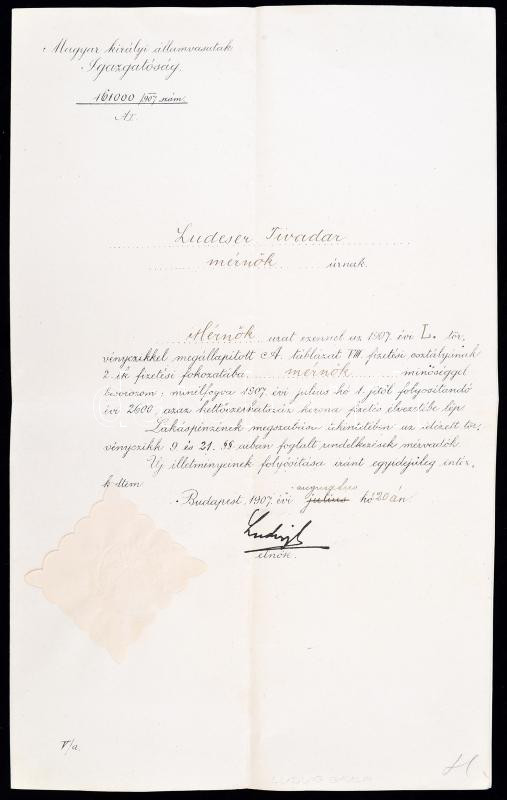 Magyar királyi államvasutak
Igazgatóság.
161000/907 szám.
A I.
Ludeser Tivadar
mérnök úrnak.
Mérnök urat ezennel az 1907. évi L. tör,
vényczikkel megállapított A. táblázat VIII fizetési osztályának
2. ik fizetési fokozatába mérnök minőséggel
besorozom; minélfogva 1907. évi julius hó 1 jétől folyósitandó
évi 2600, azaz kettőezerhatszáz korona fizetés élvezetébe lép.
Lakáspénzének megszabása tekintetében az idézett tör,
vényczikk 9 és 21. §§ aiban foglalt rendelkezések mérvadók.
Új illetményeinek folyósitása iránt egyidejüleg intéz,
kedtem
augusztus
Budapest, 1907. évi julius hó 20 án.
Ludvigh
elnök.
V/a.